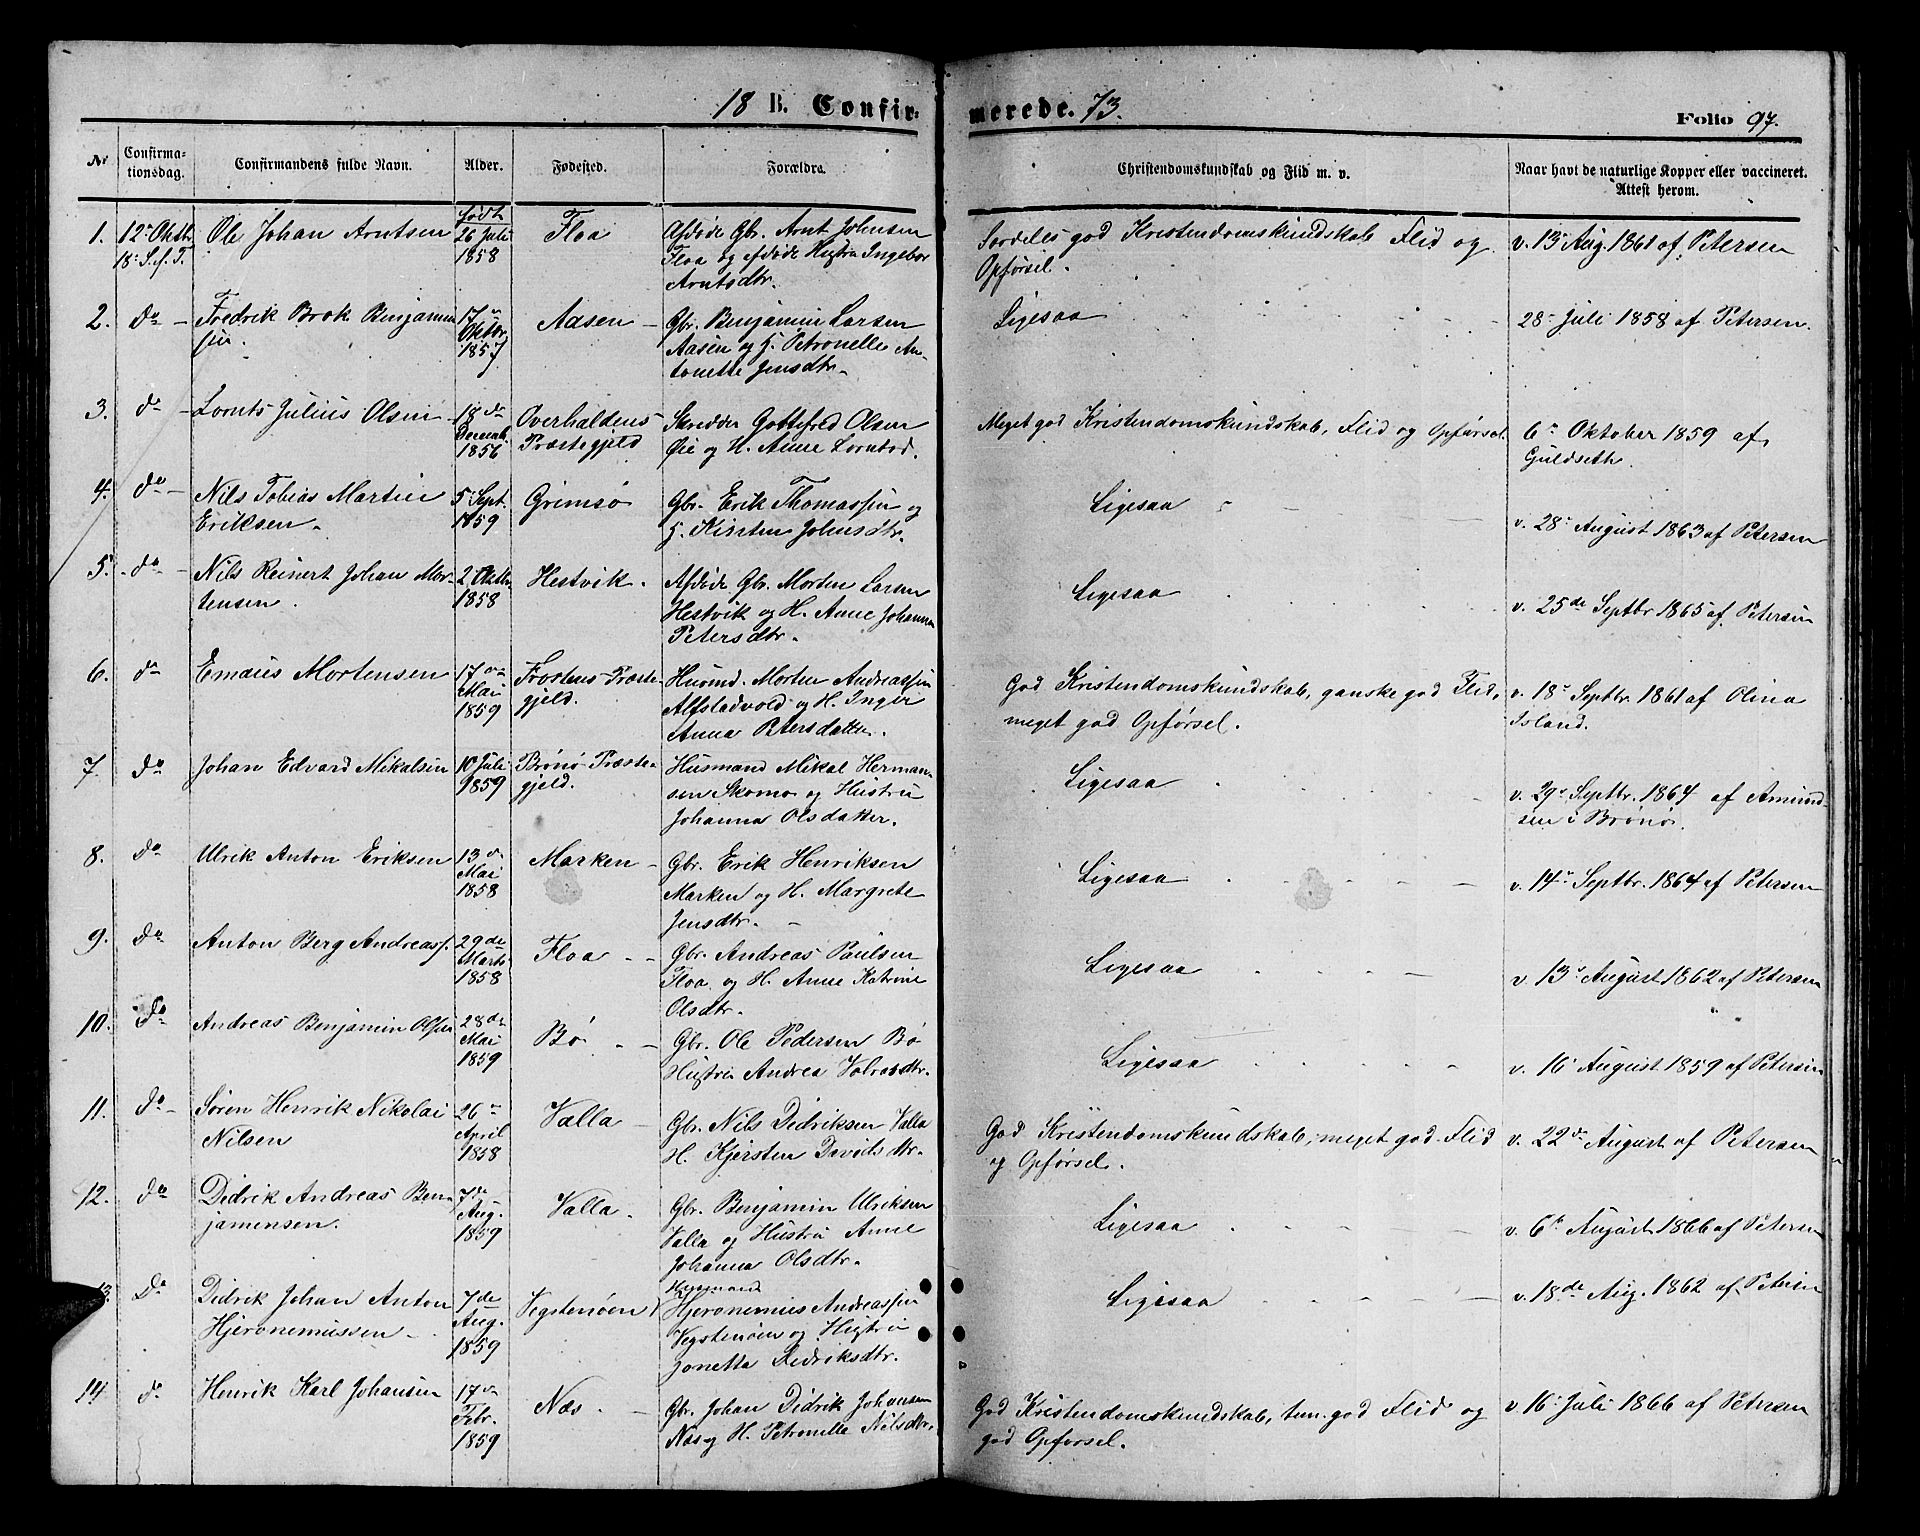 18 B. Confirmerede. 73.
Folio 97.
№ Confirmationsdag. Confirmandens fulde Navn. Alder. Fødested. Forældre. Christendomskundskab og Flid m. v. Naar havt de naturlige Kopper eller vaccineret. Attest herom.
1. 12te Oktbr. 18 S.e.T.
Ole Johan Arntsen
født 26 Juli 1858
Floa
Afdøde Gbr. Arnt Johnsen
Floa og Afdøde Hustru Ingebor
Arntsdtr.
Særdeles god Kristendomskundskab Flid og
Opførsel.
v. 13 Aug. 1861 af Petersen
2. do
Fredrik Brok Benjaminsen.
17de Oktbr. 1857
Aasen
Gbr. Benjamin Larsen
Aasen og H. Petronelle An-
tonette Jensdtr.
Ligesaa
28 Juli 1858 af Petersen.
3. do
Lornts Julius Olsen
18de Decemb. 1856
Overhaldens
Præstegjeld
Skredder Gottefred Olsen
Øie og H. Anne Lorntsd.
Meget god Kristendomskundskab, Flid og Opførsel.
6te Oktober 1859 af
Guldseth.
4. do
Nils Tobias Martin
Eriksen.
5 Sept. 1859
Grimsø
Gbr. Erik Thomassen og
H. Kirsten Johnsdtr.
Ligesaa
v. 28 August 1863 af Petersen
5. do
Nils Reinert Johan Mor-
tensen.
2 Oktbr. 1858
Hestvik.
Afdøde Gbr. Morten Larsen
Hestvik og H. Anne Johanna
Petersdtr.
Ligesaa
v. 25de Septbr 1865 af Petersen
6. do
Emaus Mortensen
17de Mai 1859
Frostens Præste-
gjeld.
Husmd. Morten Andreassen
Alfsladvold og H. Inger
Anna Petersdatter.
God Kristendomskundskab, ganske god Flid,
meget god Opførsel.
v. 18 Septbr. 1861 af Olina
Island.
7. do
Johan Edvard Mikalsen
10 Juli 1859
Brønø Præste-
gjeld.
Husmand Mikal Herman-
sen Skomo og Hustru
Johanna Olsdatter.
Ligesaa
v. 29 Septbr. 1864 af Amund-
sen i Brønø.
8. do
Ulrik Anton Eriksen
13de Mai 1858
Marken
Gbr. Erik Henriksen
Marken og H. Margrete
Jensdtr.
Ligesaa
v. 14 Septbr. 1864 af Petersen
9. do
Anton Berg Andreass.
29de Marts 1858
Floa
Gbr. Andreas Paulsen
Floa og H. Anne Katrine
Olsdtr.
Ligesaa
v. 13 August 1862 af Petersen
10. do
Andreas Benjamin Olsen
28de Mai 1859
Bø
Gbr. Ole Pedersen Bø
Hustru Andrea
Ligesaa
v. 16 August 1859 af Petersen
11. do
Søren Henrik Nikolai
Nilsen
26de April 1858
Valla
Gbr. Nils Didriksen Valla
H. Kjersten Davidsdtr.
God Kristendomskundskab, meget god Flid
og Opførsel.
v. 22de August af Petersen
12. do
Didrik Andreas Ben-
jamensen.
7de Aug. 1859
Valla.
Gbr. Benjamin Ulriksen
Valla og Hustru Anne
Johanna Olsdtr.
Ligesaa
v. 6te August 1866 af Petersen
13. do
Didrik Johan Anton
Hjeronemussen
7de Aug. 1859
Vegstenøen
Husmand
Hjeronemus Andreassen
Vegstenøen og Hustru
Jonetta Didriksdtr.
Ligesaa
v. 18de Aug. 1862 af Petersen
14. do
Henrik Karl Johansen
17de Febr. 1859
Næs.
Gbr. Johan Didrik Johansen
Næs og H. Petronella Nilsdtr.
God Kristendomskundskab, tem. god Flid og
god Opførsel.
v. 16 Juli 1866 af Petersen